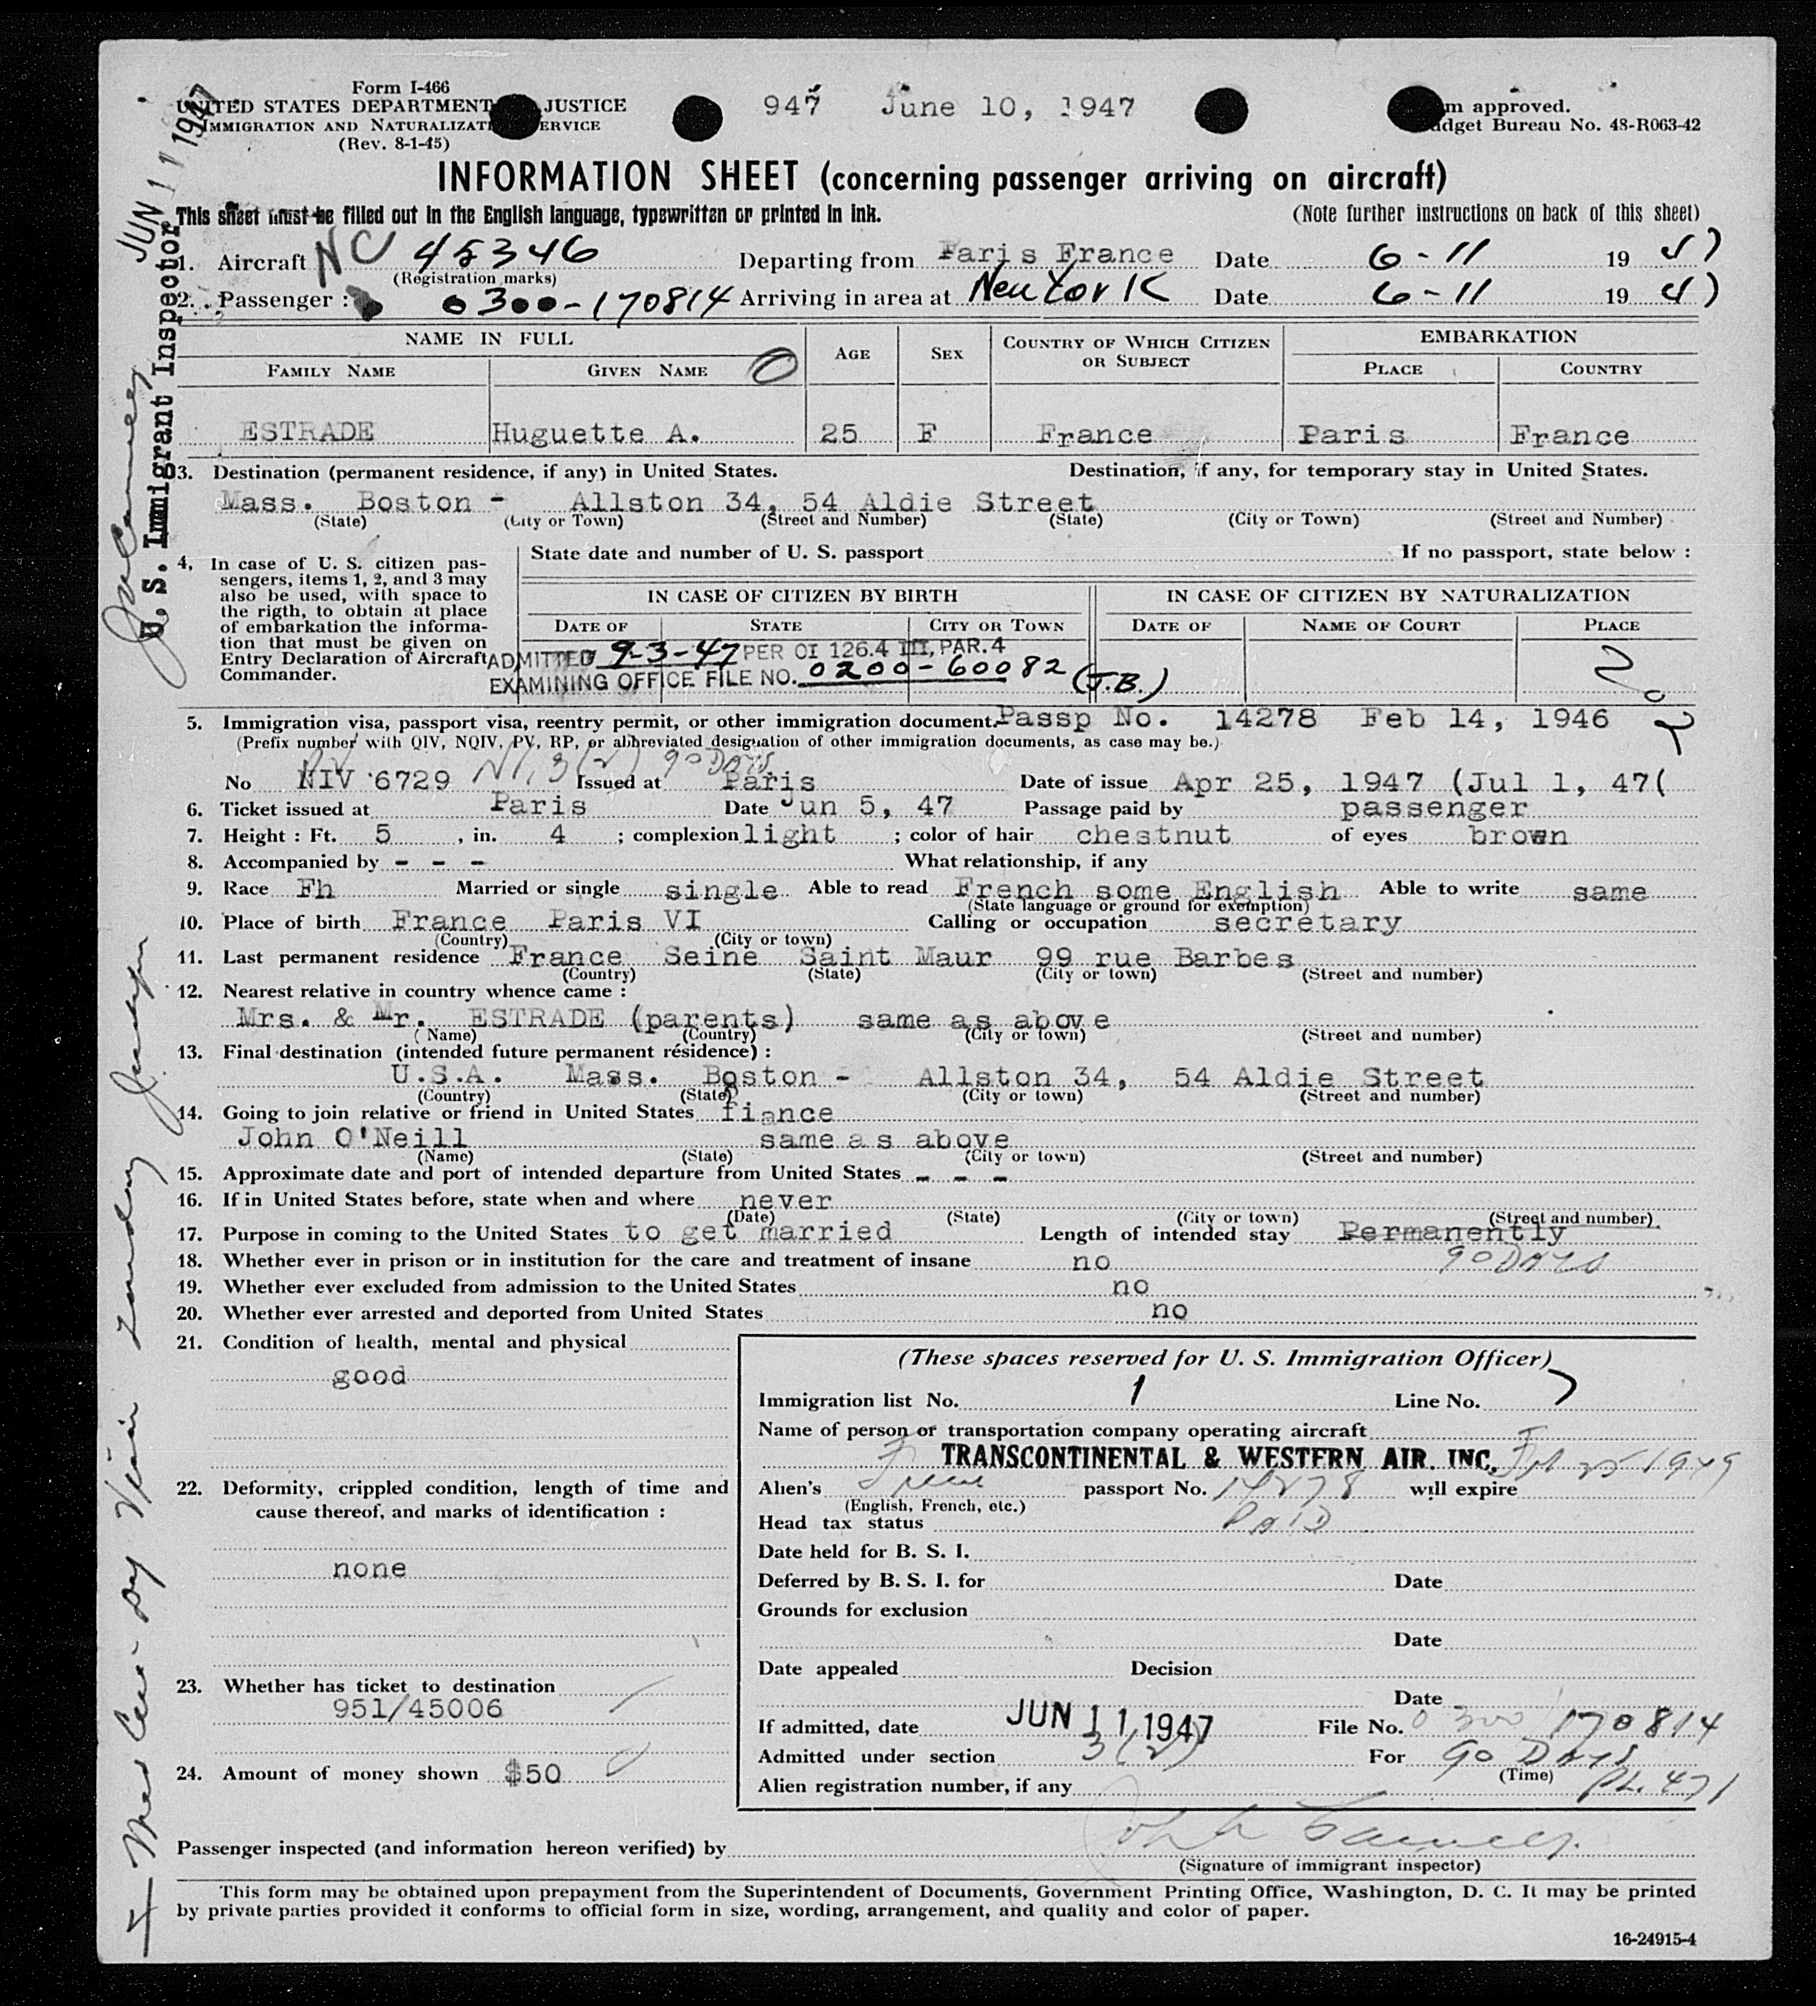 Form I-466
UNITED STATES DEPARTMENT JUSTICE
IMMIGRATION AND NATURALIZATI ERVICE
(Rev. 8-1-45)
947 June 10, 1947
m approved.
dget Bureau No. 43-R063-42
INFORMATION SHEET (concerning passenger arriving on aircraft)
This sheet must be filled out in the English language, typewritten or printed in ink.
(Note further instructions on back of this sheet)
1. Aircraft NC 45346 Departing from Paris France Date 6-11 1947
(Registration marks)
2. Passenger : 0300-170814 Arriving in area at New York Date 6-11 1947
NAME IN FULL
FAMILY NAME GIVEN NAME AGE SEX COUNTRY OF WHICH CITIZEN OR SUBJECT EMBARKATION PLACE COUNTRY
ESTRADE Huguette A. 25 F France Paris France
3. Destination (permanent residence, if any) in United States. Destination, if any, for temporary stay in United States.
Mass. Boston - Allston 34, 54 Aldie Street
(State) (City or Town) (Street and Number) (State) (City or Town) (Street and Number)
4, In case of U. S. citizen pas-
sengers, items 1, 2, and 3 may
also be used, with space to
the rigth, to obtain at place
of embarkation the informa-
tion that must be given on
Entry Declaration of Aircraft
Commander.
State date and number of U. S. passport If no passport, state below :
IN CASE OF CITIZEN BY BIRTH IN CASE OF CITIZEN BY NATURALIZATION
DATE OF STATE CITY OR TOWN DATE OF NAME OF COURT PLACE
ADMITTED 9-3-47 PER OI 126.4 III, PAR. 4
EXAMINING OFFICE FILE NO. 0200-60082 (J.B.)
5. Immigration visa, passport visa, reentry permit, or other immigration document. Passp No. 14278 Feb 14, 1946
(Prefix number with QIV, NQIV, PV, RP, or abbreviated designation of other immigration documents, as case may be.)
PV 3(2) 90 DAYS
No NIV 6729 Issued at Paris Date of issue Apr 25, 1947 (Jul 1, 47(
6. Ticket issued at Paris Date Jun 5, 47 Passage paid by passenger
7. Height : Ft. 5 , in. 4 ; complexion light ; color of hair chestnut of eyes brown
8. Accompanied by - - - What relationship, if any
9. Race Fh Married or single single Able to read French some English Able to write same
(State language or ground for exemption)
10. Place of birth France Paris VI Calling or occupation secretary
(Country) (City or town)
11. Last permanent residence France Seine Saint Maur 99 rue Barbes
(Country) (State) (City or town) (Street and number)
12. Nearest relative in country whence came :
Mrs. & Mr. ESTRADE (parents) same as above
(Name) (Country) (City or town) (Street and number)
13. Final destination (intended future permanent résidence) :
U.S.A. Mass. Boston - Allston 34, 54 Aldie Street
(Country) (State) (City or town) (Street and number)
14. Going to join relative or friend in United States fiance
John O'Neill same as above
(Name) (State) (City or town) (Street and number)
15. Approximate date and port of intended departure from United States - - -
16. If in United States before, state when and where never
(Date) (State) (City or town) (Street and number)
17. Purpose in coming to the United States to get married Length of intended stay Permanently
90 DAYS
18. Whether ever in prison or in institution for the care and treatment of insane no
19. Whether ever excluded from admission to the United States no
20. Whether ever arrested and deported from United States no
21. Condition of health, mental and physical
good
22. Deformity, crippled condition, length of time and
cause thereof, and marks of identification :
none
23. Whether has ticket to destination
951/45006
24. Amount of money shown $50
(These spaces reserved for U. S. Immigration Officer)
Immigration list No. 1 Line No. 7
Name of person or transportation company operating aircraft
TRANSCONTINENTAL & WESTERN AIR. INC.
Alien's passport No. 14278 will expire 1949
(English, French, etc.)
Head tax status PAID
Date held for B. S. I.
Deferred by B. S. I. for Date
Grounds for exclusion
Date
Date appealed Decision
Date
If admitted, date JUN 11 1947 File No. 0300 170814
Admitted under section 3(2) For 90 DAYS
(Time)
Alien registration number, if any
Passenger inspected (and information hereon verified) by
(Signature of immigrant inspector)
This form may be obtained upon prepayment from the Superintendent of Documents, Government Printing Office, Washington, D. C. It may be printed
by private parties provided it conforms to official form in size, wording, arrangement, and quality and color of paper.
16-24915-4
JUN 11 1947
U. S. Immigrant Inspector